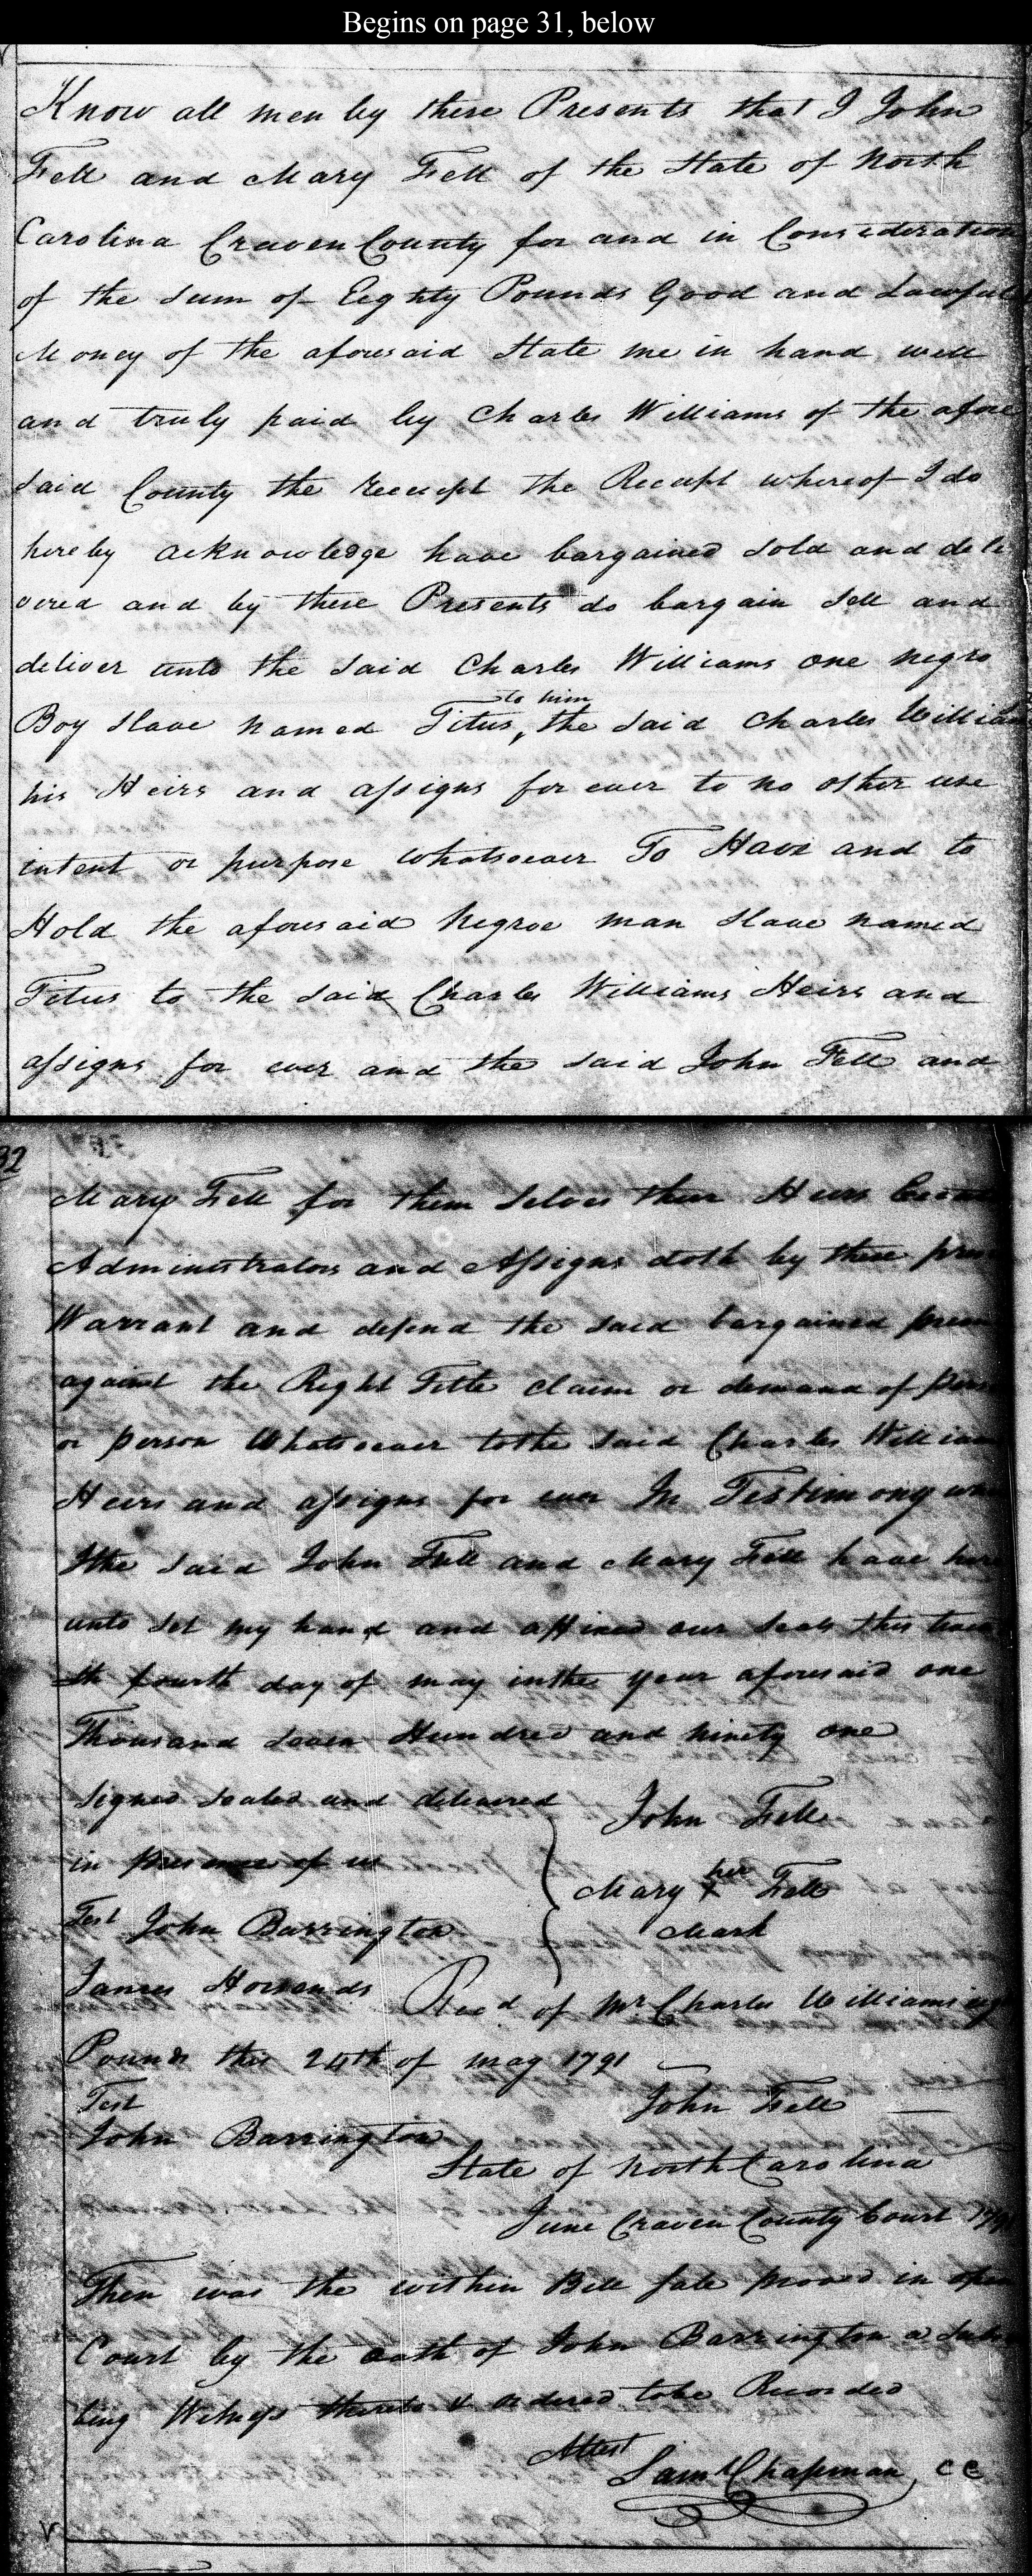 Begins on page 31, below
Know all men by these Presents that I John
Fell and Mary Fell of the State of North
Carolina Craven County for and in Consideration
of the sum of Eighty Pounds Good and Lawful
Money of the aforesaid State me in hand well
and truly paid by Charles Williams of the afore
said County the receipt the Receipt whereof I do
hereby acknowledge have bargained sold and deli
vered and by these Presents do bargain sell and
deliver unto the said Charles Williams one negro
to him
Boy slave named Titus, the said Charles William
his Heirs and assigns for ever to no other use
intent or purpose whatsoever To Have and to
Hold the aforesaid Negroe man slave named
Titus to the said Charles Williams Heirs and
assigns for ever and the said John Fell and
32
Mary Fell for them selves their Heirs
Administrators and Assigns doth by these
Warrant and defend the said bargained
against the Right Title claim or demand of
or person Whatsoever to the said Charles William
Heirs and assigns for ever In Testimony
I the said John Fell and Mary Fell have here
unto set my hand and affixed our seals this
th fourth day of may in the year aforesaid one
Thousand Seven Hundred and ninety one
signed sealed and delivered John Fell
in presence of us
her
Mary X Fell
Mark
Test John Barrington
James
Reced of Mr Charles Williams
Pounds this 24th of may 1791
Test John Fell
John Barrington
State of North Carolina
June Craven County Court
Then was the within Bill sale proved in open
Court by the oath of John Barrington a
bing Witness thereto & ordered to be Recorded
Attest
Saml Chapman, CC